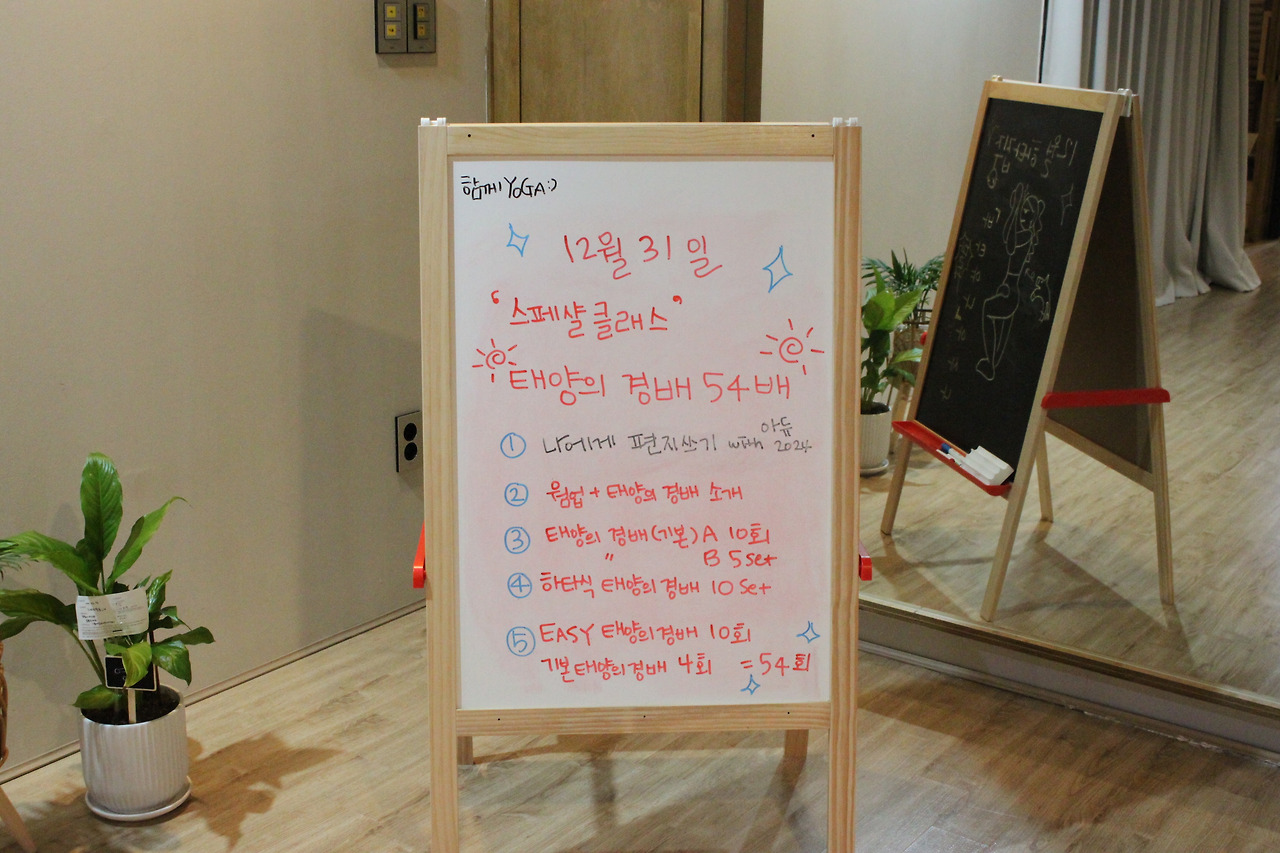 함께 YOGA:)
12월 31일
'스페샬 클래스'
태양의 경배 54배
① 나에게 편지쓰기 with 아듀 2024
② 웜업 + 태양의 경배 소개
③ 태양의 경배(기본) A 10회
〃 B 5 set
④ 하타식 태양의 경배 10 Set
⑤ EASY 태양의경배 10회
기본태양의경배 4회 = 54회